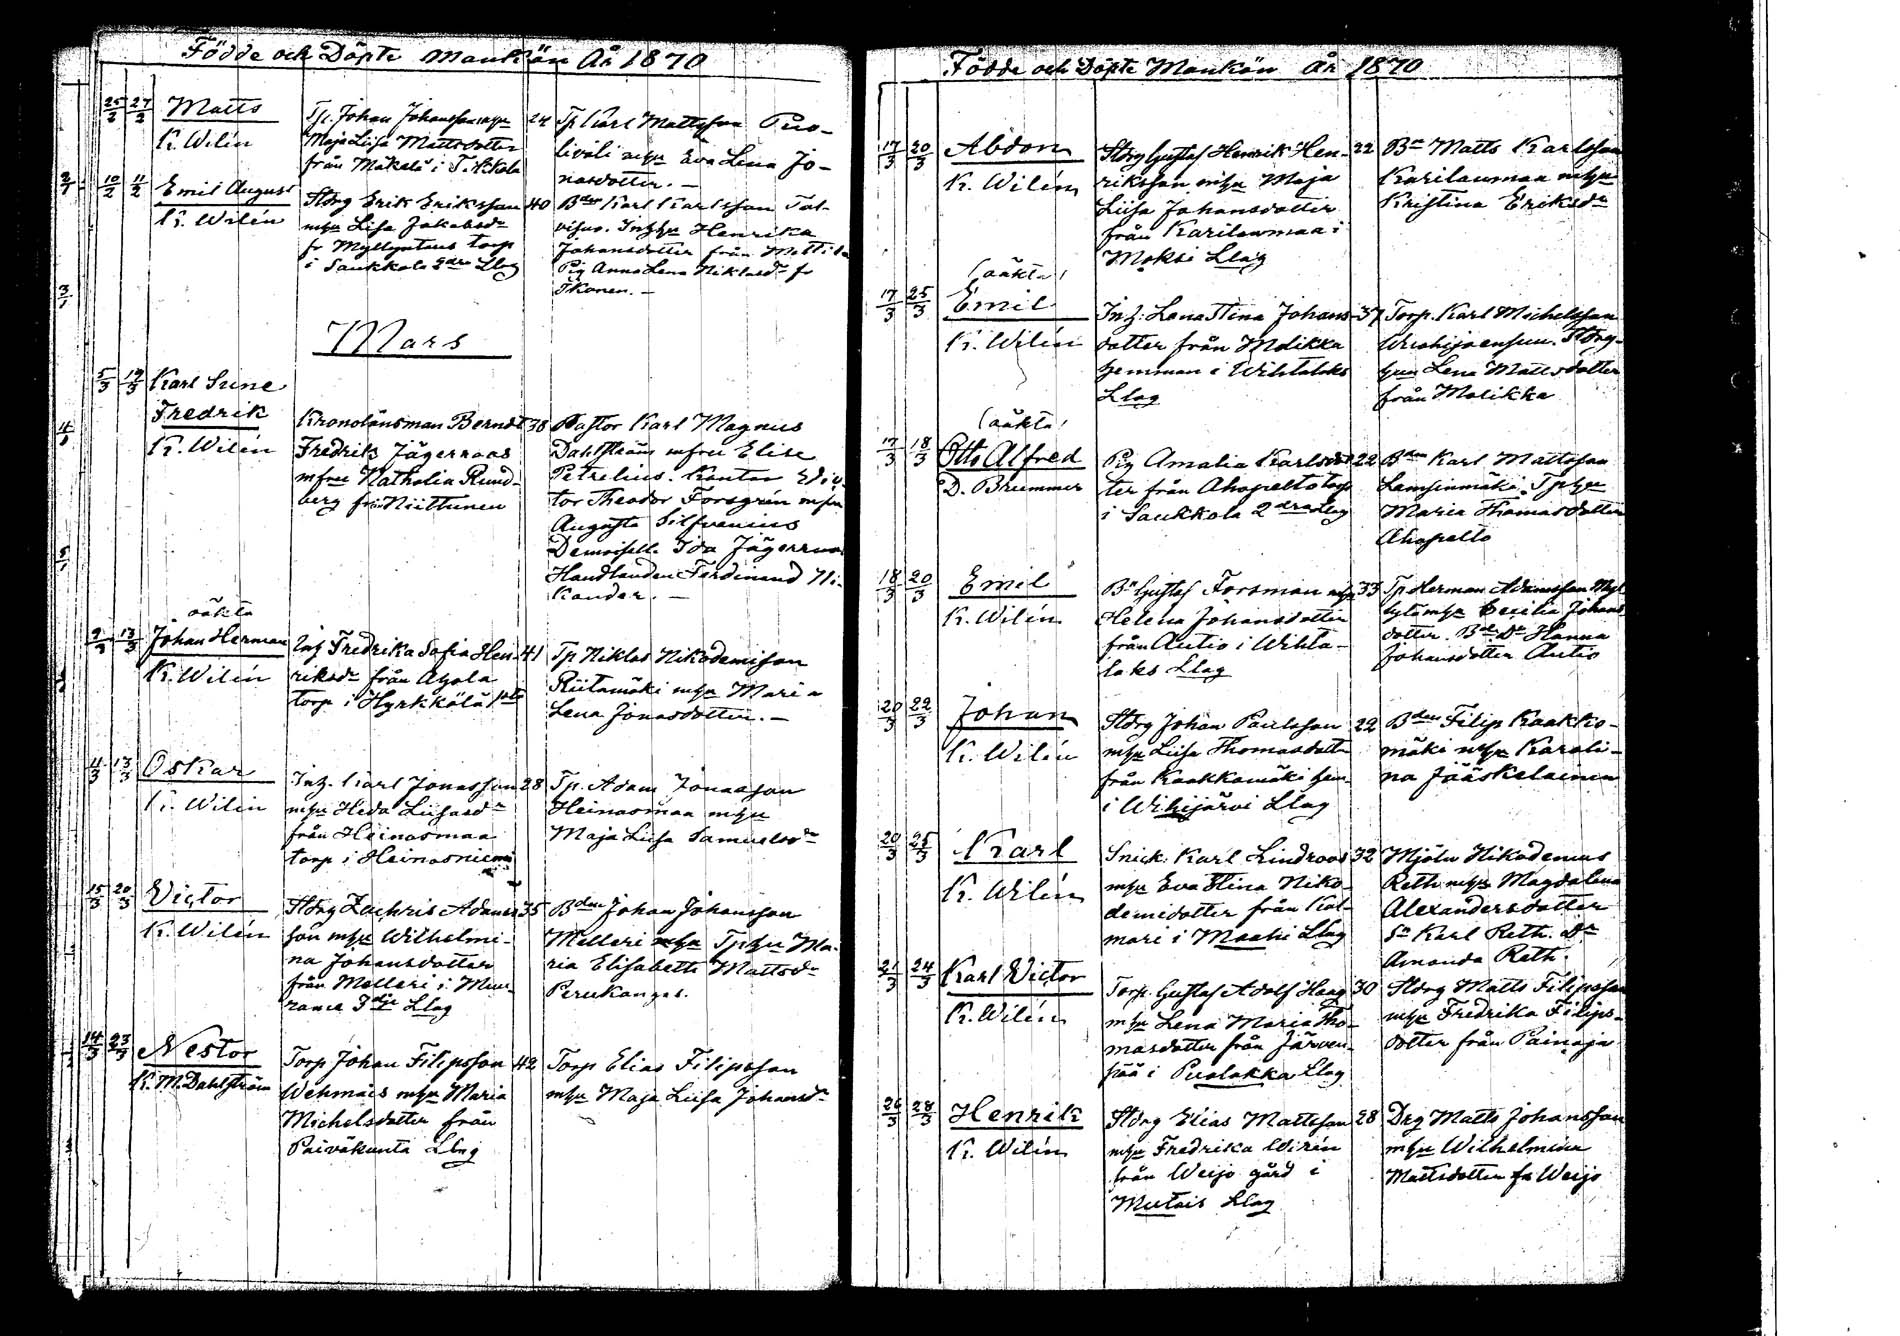 Födde och Döpte Mankön År 1870
25/2 27/2 Matts
K. Wilén
Tp. Johan Johansson mhu
Maja Liisa Mattsdotter
från Mäkelä i T.
24
Tp Karl Mattsson Puo-
liväli mhu Eva Lena Jo-
nasdotter. —
10/2 11/2 Emil August
K. Wilén
Stdrg Erik Eriksson
mhu Lisa Jakobsdr
fr Myllyntaus torp
i Saukkola 2dra Llag
40
Bden Karl Karlsson Tal-
visuo. Inhhu Henrika
Johansdotter från Mattila
Pig Anna Lena Niklasdr fr
Ikonen. —
Mars
5/3 19/3 Karl Sune
Fredrik
K. Wilén
Kronolänsman Berndt
Fredrik Jägerroos
mfru Nathalia Rund-
berg från Niittunen
38
Pastor Karl Magnus
Dahlström mfru Elise
Petrelius. Kantor Edvi-
tor Theodor Forsgrén mfru
Augusta Silfvenius
Demoisell. Ida Jägerroos
Handlanden Ferdinand Ni-
kander. —
oäkta
9/3 13/3 Johan Herman
K. Wilén
Inh Fredrika Sofia Hen-
riksdr från Ajola
torp i Hyrkkälä 1sta
41
Tp Niklas Nikodemison
Riitamäki mhu Maria
Lena Jonasdotter. —
11/3 13/3 Oskar
K. Wilén
Inh. Karl Jonasson
mhu Heda Liisasdr
från Heinasmaa
torp i Heinasniemi
28
Tp. Adam Jonasson
Heinasmaa mhu
Maja Liisa Samuelsdr
15/3 20/3 Victor
K. Wilén
Stdrg Zachris Adams
son mhu Wilhelmi-
na Johansdotter
från Melleri i Muu-
rama 3dje Llag
35
Bden Johan Johansson
Melleri mhu Tphu Ma-
ria Elisabeth Mattsdr
Perukangas.
14/3 23/3 Nestor
K. M. Dahlström
Torp Johan Filipsson
Wehmais mhu Maria
Michelsdotter från
Päiväkunta Llag
42
Torp Elias Filipsson
mhu Maja Liisa Johansdr
Födde och Döpte Mankön År 1870
17/3 20/3 Abdon
K. Wilén
Stdrg Gustaf Henrik Hen-
riksson mhu Maja
Liisa Johansdotter
från Karilanmaa i
Moksi Llag
22
Bn Matts Karlsson
Karilanmaa mhu
Kristina Eriksdr
(oäkta)
17/3 25/3 Emil
K. Wilén
Inh: Lena Stina Johans-
dotter från Molikka
hemman i Wihtalaks
Llag
37
Torp. Karl Michelsson
Stdrg-
hun Lena Mattsdotter
från Molikka
(oäkta)
17/3 18/3 Otto Alfred
D. Brummer
Pig Amalia Karlsdot
ter från Ahopelto torp
i Saukkola 2dra Llag
22
Bden Karl Mattsson
Lamsinmäki. Tphu
Maria Thomasdotter
Ahopelto
18/3 20/3 Emil
K. Wilén
Bn Gustaf Forsman mhu
Helena Johansdotter
från Autio i Wihta-
laks Llag
33
Tp Herman Adamsson
mhu Cecilia Johans
dotter. Bd. Dr Hanna
Johansdotter Autio
20/3 22/3 Johan
K. Wilén
Stdrg Johan Paulsson
mhu Liisa Thomasdotter
från Kaakkomäki hem
i Wihijärvi Llag
22
Bden Filip Kaakko-
mäki mhu Karoli-
na Jääskeläinen
20/3 25/3 Karl
K. Wilén
Snick. Karl Lindroos
mhu Eva Stina Niko-
demidotter från Kal-
mari i Maahi Llag
32
Mjöln Nikodemus
Reth mhu Magdalena
Alexandersdotter
Sn Karl Reth. Dr
Amanda Reth.
21/3 24/3 Karl Victor
K. Wilén
Torp. Gustaf Adolf Haag
mhu Lena Maria Tho-
masdotter från Järven-
pää i Puolakka Llag
30
Stdrg Matts Filipsson
mhu Fredrika Filips-
dotter från Painaja
26/3 28/3 Henrik
K. Wilén
Stdrg Elias Mattsson
mhu Fredrika Wirén
från Weijo gård i
Mutais Llag
28
Drg Matts Johansson
mhu Wilhelmina
Mattsdotter fr Weijo